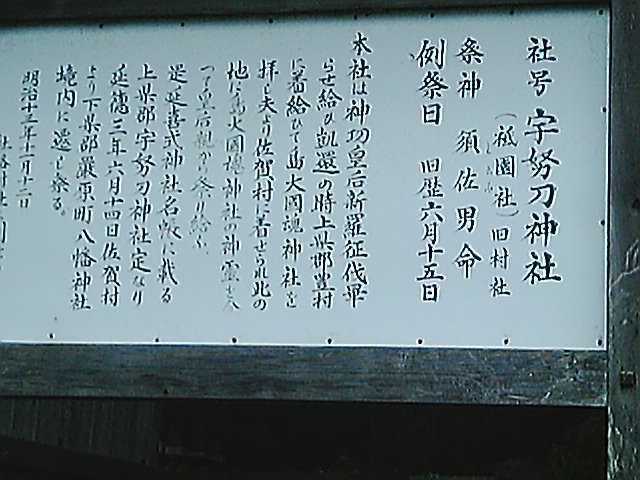 社号 宇努刀神社
（祇園社）旧村社
祭神 須佐男命
例祭日 旧歴六月十五日
本社は神功皇后新羅征伐畢
らせ給ひ凱還の時上県郡豊村
に着給ひて島大國魂神社を
拝し夫より佐賀村に着せられ北の
地に島大國魂神社の神霊を
つて皇后親から祭り給ふ
是延喜式神社名帳に載る
上県郡宇努刀神社定なり
延徳三年六月十四日佐賀村
より下県郡厳原町八幡神社
境内に遷し祭る。
明治十三年十一月十二日